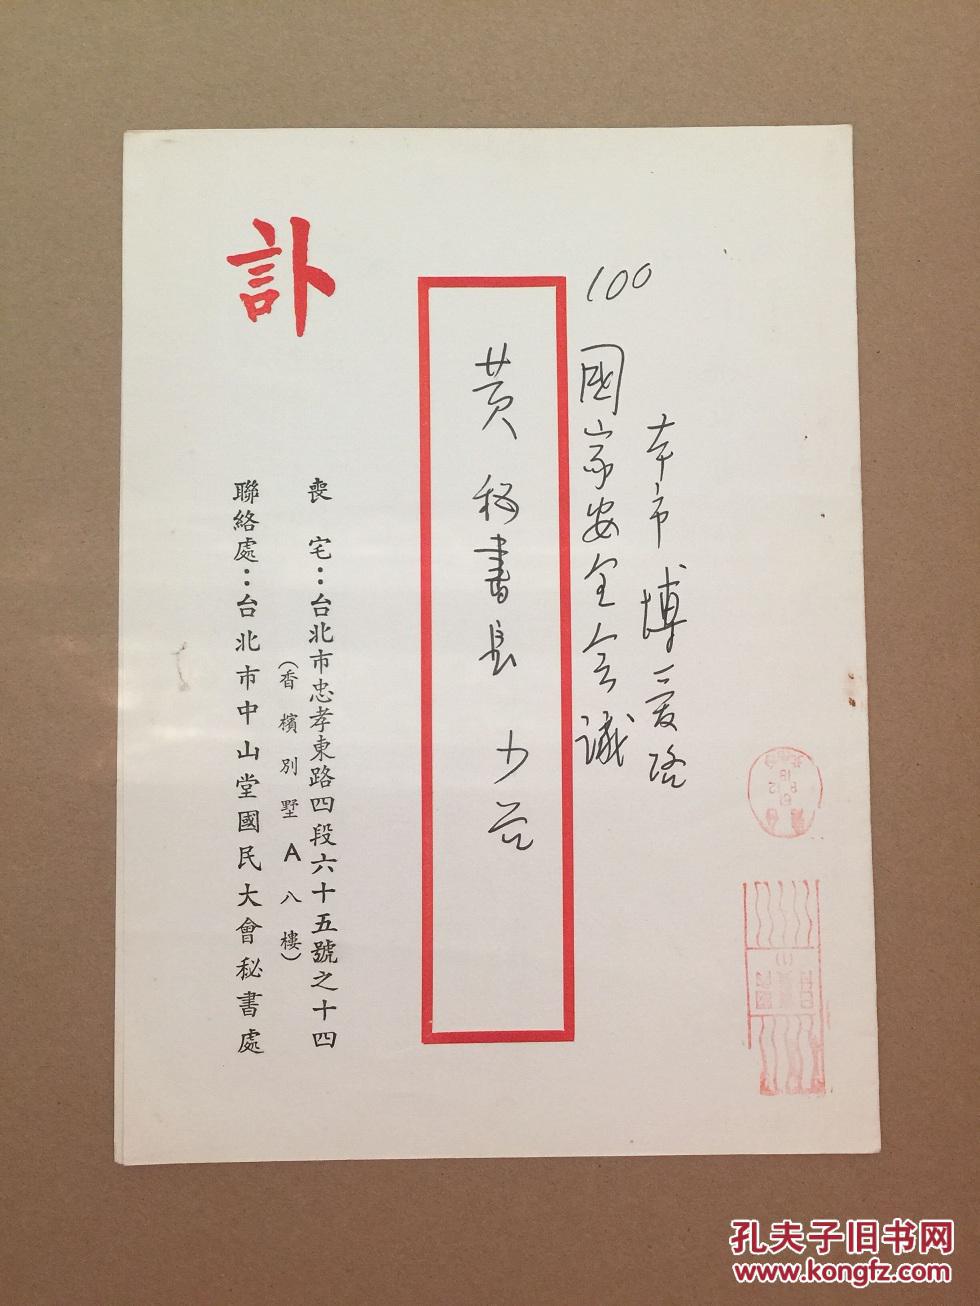 100
本市博愛路
國家安全会議
黄秘書長 少谷
訃
喪宅：台北市忠孝東路四段六十五號之十四
（香檳別墅A八樓）
聯絡處：台北市中山堂國民大會秘書處
孔夫子旧书网
www.kongfz.com